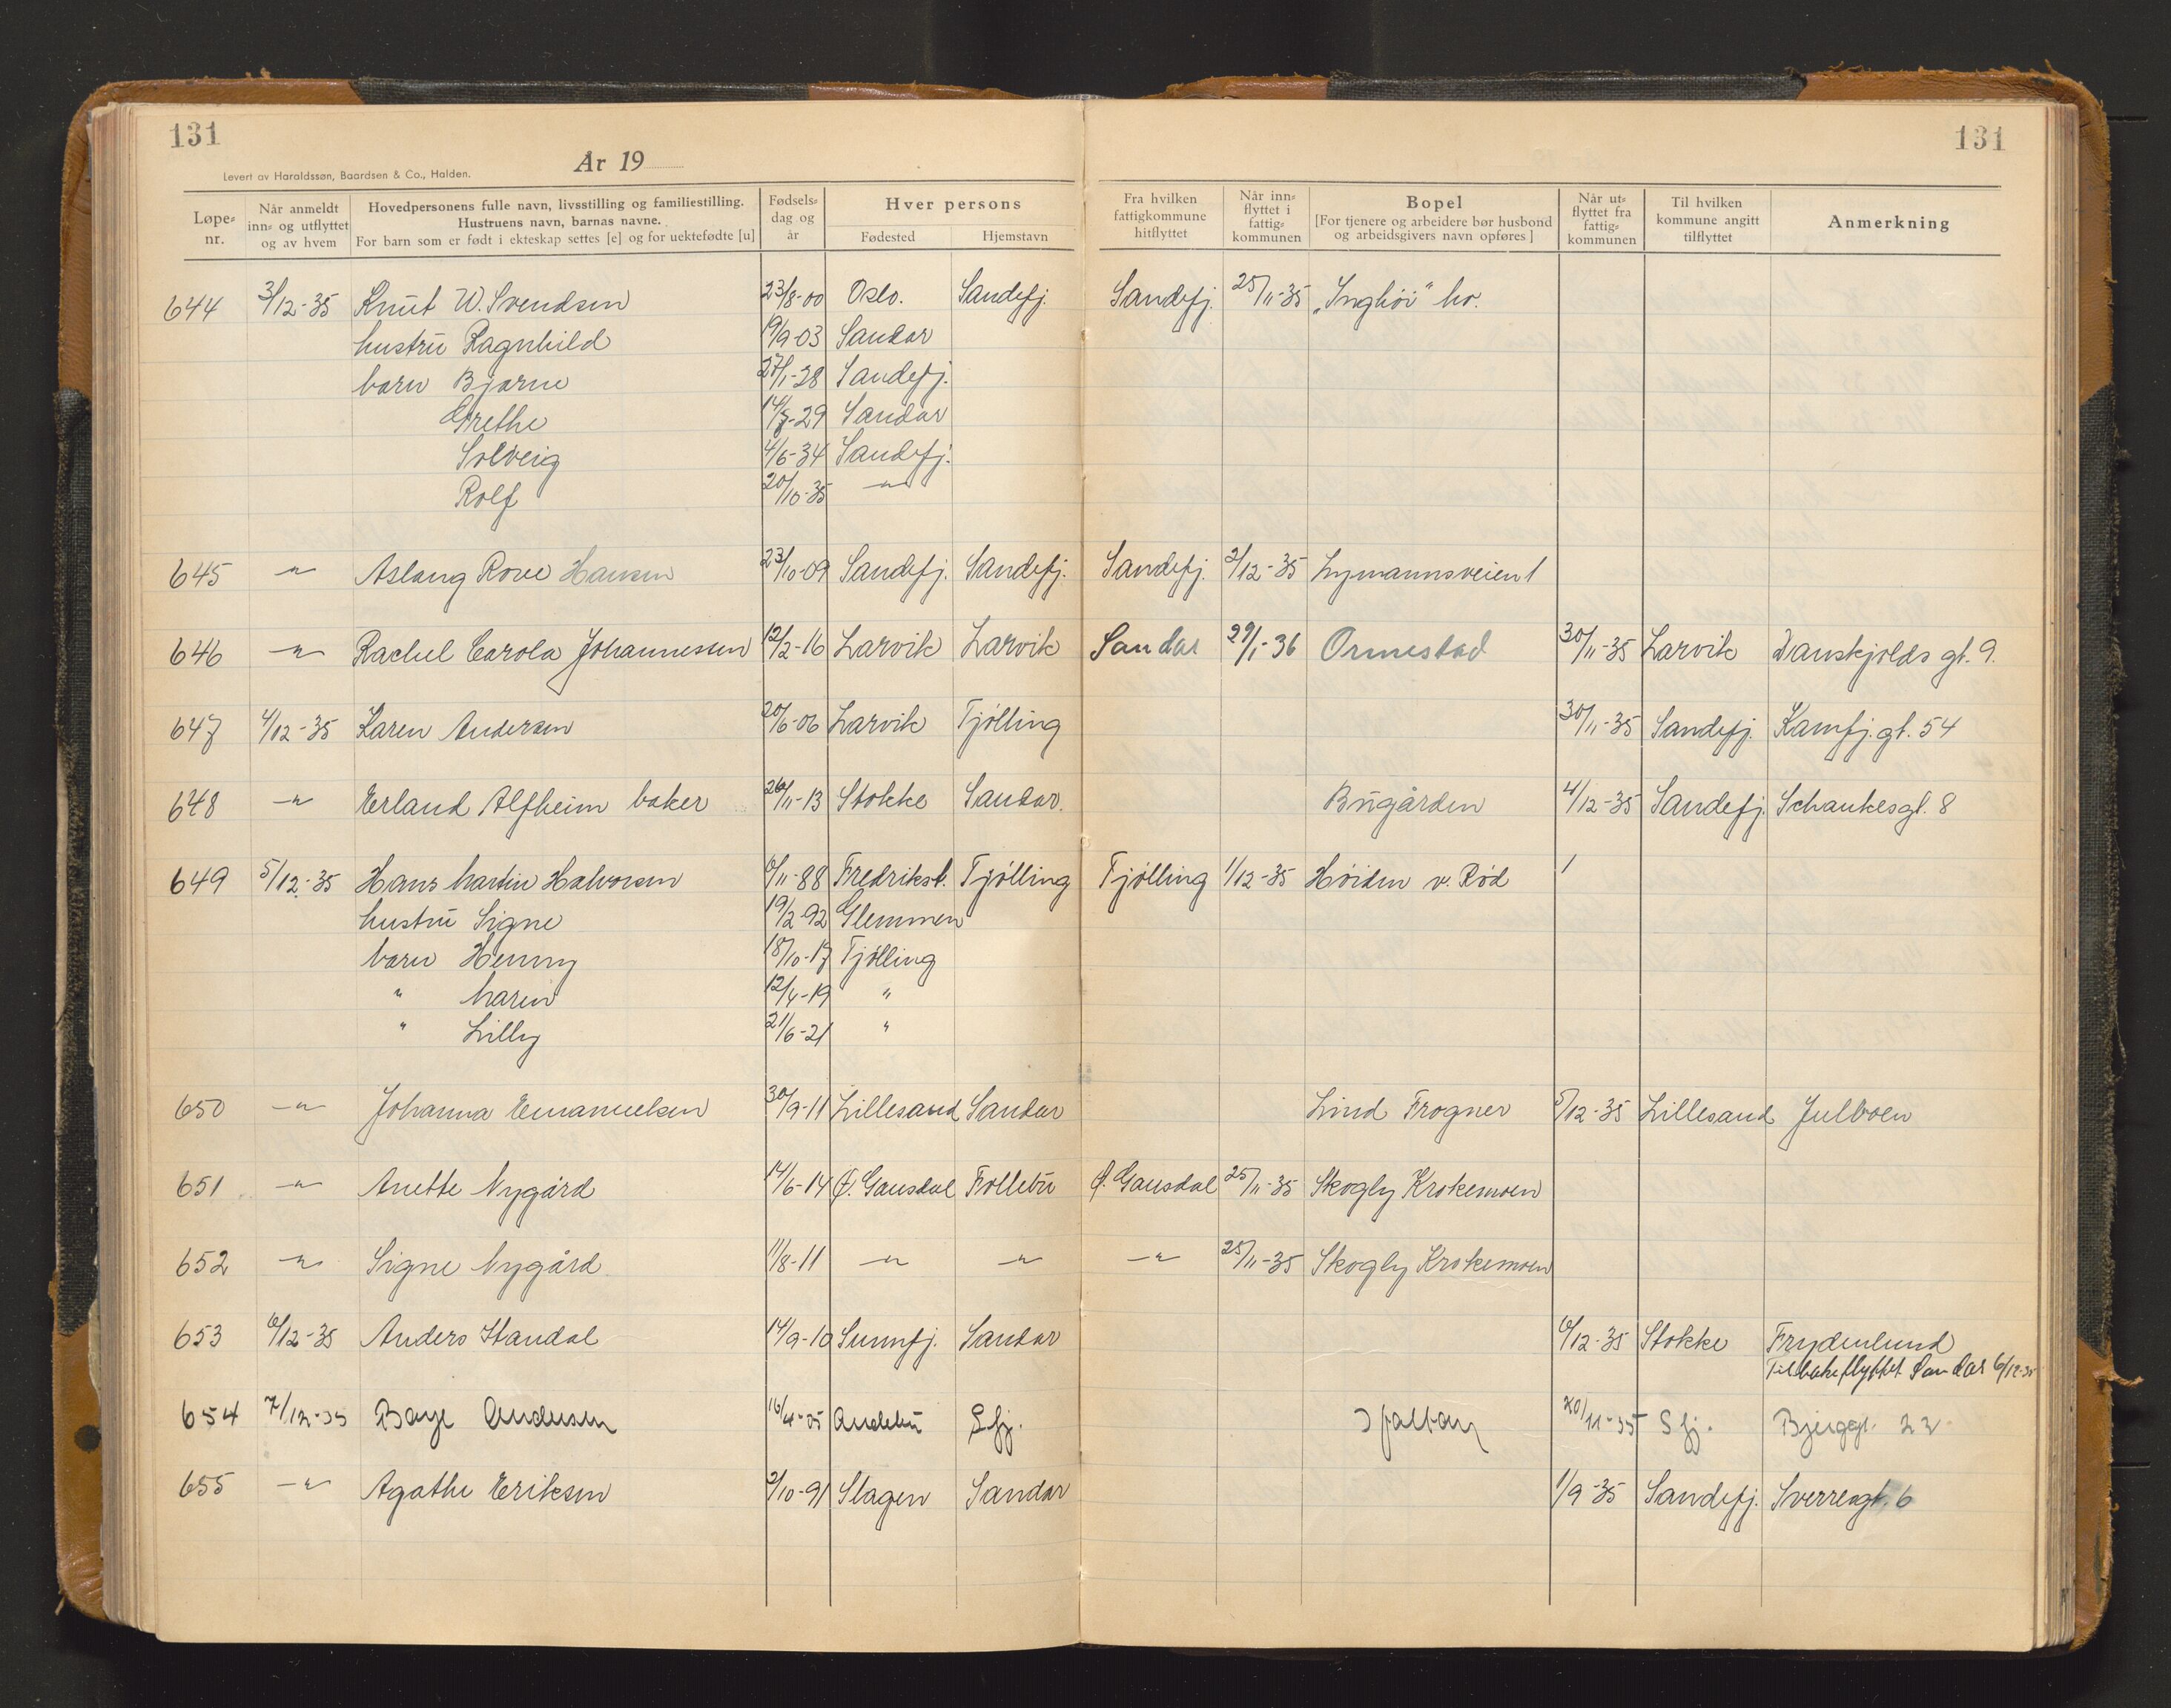 131
131
År 19
Levert av Haraldssøn, Baardsen & Co., Halden.
Løpe-nr. Når anmeldt inn- og utflyttet og av hvem Hovedpersonens fulle navn, livsstilling og familiestilling. Hustruens navn, barnas navne. For barn som er født i ekteskap settes [e] og for uektefødte [u] Fødsels-dag og år Hver persons Fødested Hjemstavn Fra hvilken fattigkommune hitflyttet Når inn-flyttet i fattig-kommunen Bopel [For tjenere og arbeidere bør husbond og arbeidsgivers navn opføres] Når ut-flyttet fra fattig-kommunen Til hvilken kommune angitt tilflyttet Anmerkning
644 3/12-35 Knut W. Svendsen 23/8-00 Oslo. Sandefj. Sandefj. 25/11-35 „Inghöi“
hustru Ragnhild 19/9-03 Sandar
barn Bjarne 27/1-28 Sandefj.
Grethe 14/7-29 Sandar
Solveig 4/6-34 Sandefj.
Rolf 20/10-35 —"—
645 —"— Aslaug Rove Hansen 23/10-09 Sandefj. Sandefj. Sandefj. 2/12-35 Lymannsveien 1
646 —"— Rachel Carola Johannessen 12/2-16 Larvik Larvik Sandar 29/1-36 Ormestad 30/11-35 Larvik Danskjolds gt. 9.
647 4/12-35 Karen Andersen 20/6-06 Larvik Tjölling 30/11-35 Sandefj. Kamfj. gt. 54
648 —"— Erland Alfheim baker 26/11-13 Stokke Sandar. Bugården 4/12-35 Sandefj. Schankesgt. 8
649 5/12-35 Hans Martin Halvorsen 6/11-88 Fredrikst. Tjölling Tjölling 1/12-35 Höiden v. Röd /
hustru Signe 19/2-92 Glemmen
barn Henny 18/10-17 Tjölling
" Marin 12/4-19 "
" Lilly 21/6-21 "
650 —"— Johanna Emanuelsen 30/9-11 Lillesand Sandar Lind Frogner 5/12-35 Lillesand Julboen
651 —"— Anette Nygård 14/6-14 Ø. Gausdal Follebu Ø. Gausdal 25/11-35 Skogly Krokemoen
652 —"— Signe Nygård 11/8-11 —"— —"— —"— 25/11-35 Skogly Krokemoen
653 6/12-35 Anders Standal 14/9-10 Sunnfj. Sandar 6/12-35 Stokke Frydenlund
Tilbakeflyttet Sandar 6/12-35
654 7/12-35 Andersen 16/4-05 Andebu Sfj. 20/11-35 Sfj. Bjerggt. 22
655 —"— Agathe Eriksen 2/10-91 Slagen Sandar 1/9-35 Sandefj. Sverresgt. 6